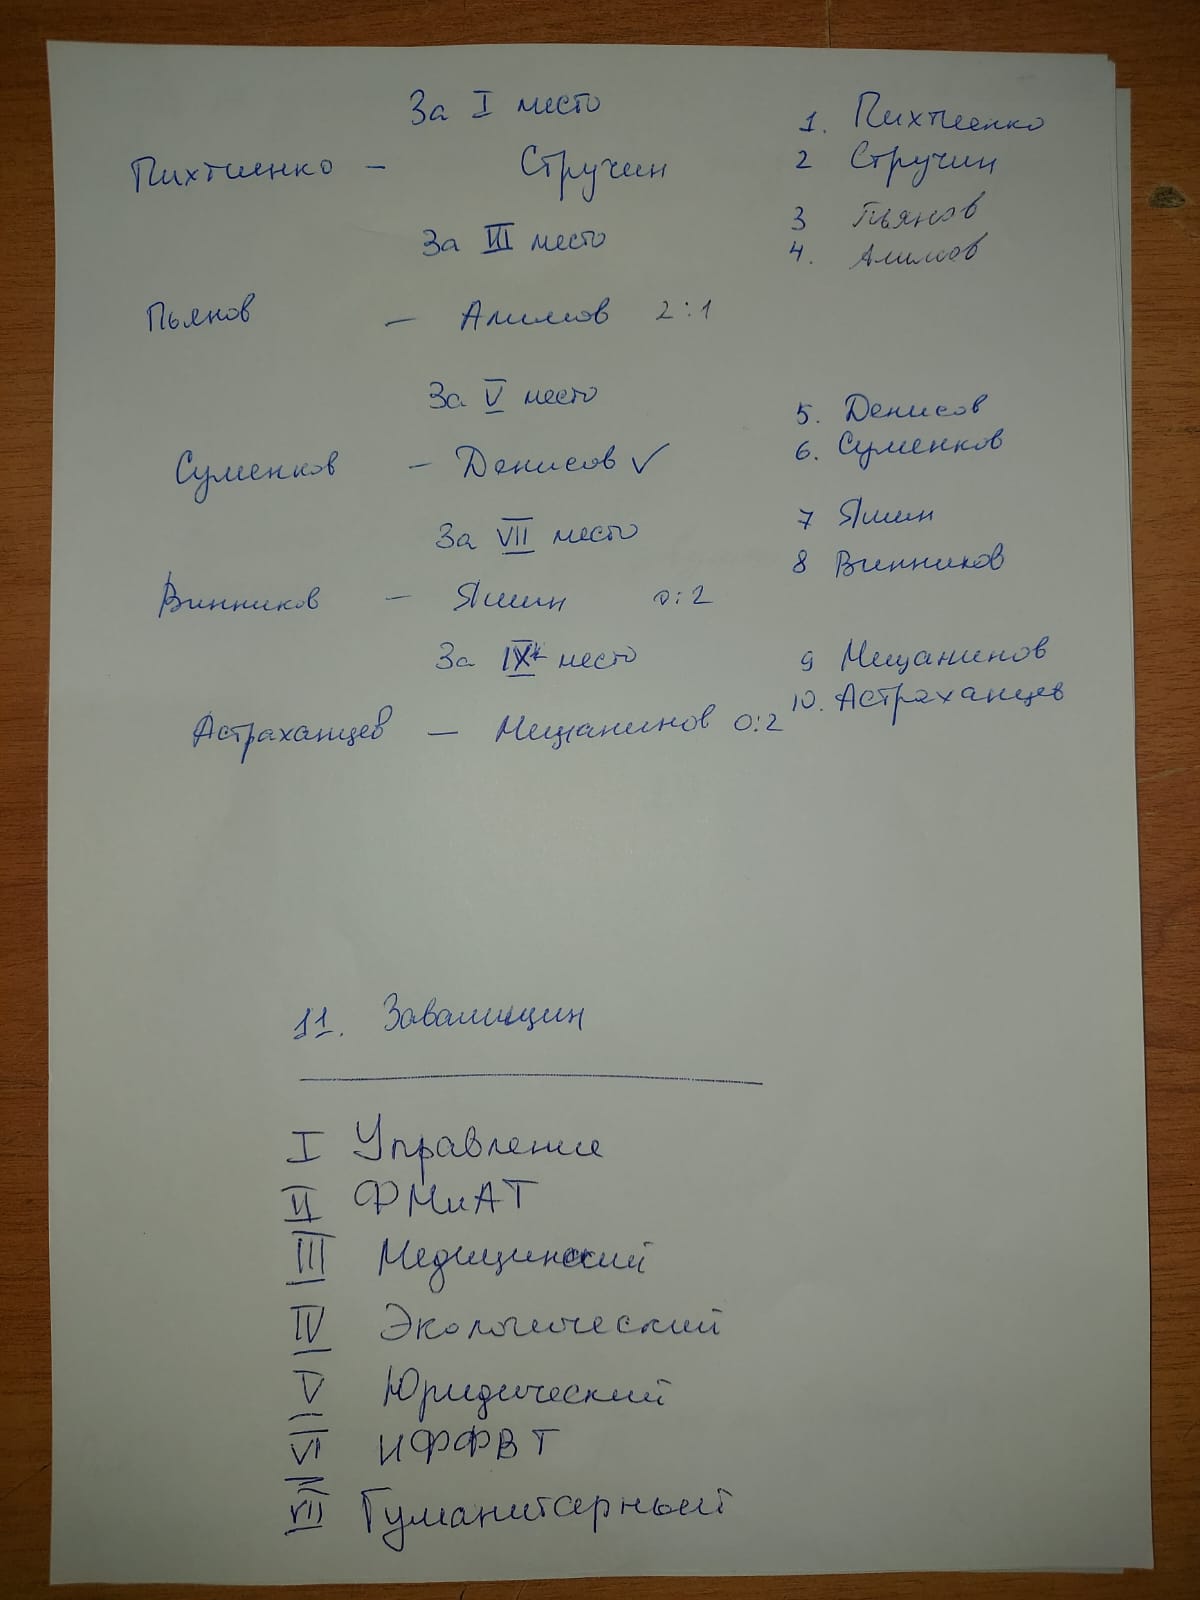 За I место
Пихтиенко – Стручин
За III место
Пьянов – Алимов 2:1
За V место
Суменков – Денисов ✓
За VII место
Винников – Яшин 0:2
За IX место
Астраханцев – Мещанинов 0:2
1. Пихтиенко
2 Стручин
3 Пьянов
4. Алимов
5. Денисов
6. Суменков
7 Яшин
8 Винников
9 Мещанинов
10. Астраханцев
11. Завалищин
I Управление
II ФМиАТ
III Медицинский
IV Экологический
V Юридический
VI ИФФВТ
VII Гуманитарный